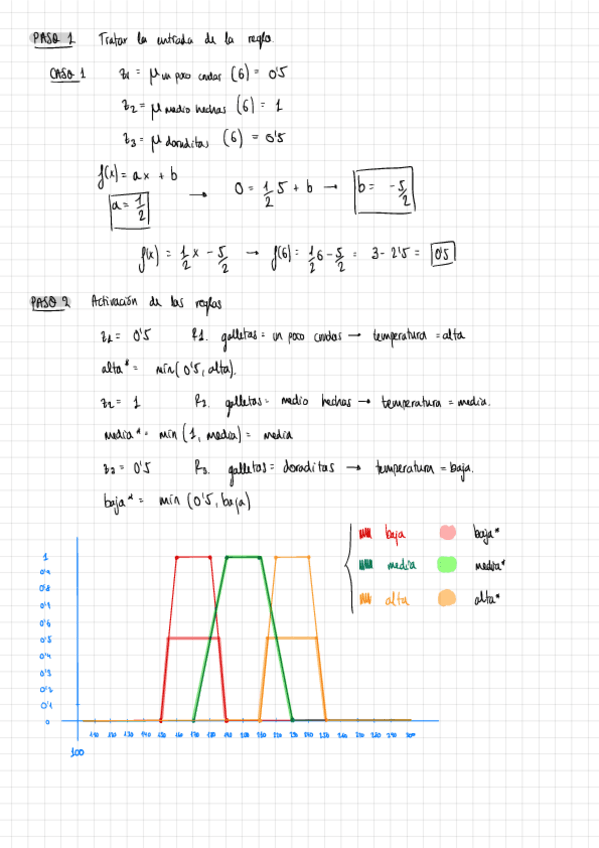 PASO 1 Tratar la entrada de la regla.
CASO 1 z1 = μ un poco crudas (6) = 0'5
z2 = μ medio hechas (6) = 1
z3 = μ doraditas (6) = 0'5
f(x) = ax + b
a = 1/2 → 0 = 1/2 5 + b → b = -5/2
f(x) = 1/2 x - 5/2 → f(6) = 1/2 6 - 5/2 = 3 - 2'5 = 0'5
PASO 2 Activación de las reglas
z1 = 0'5 R1. galletas = un poco crudas → temperatura = alta
alta* = min(0'5, alta).
z2 = 1 R2. galletas = medio hechas → temperatura = media.
media* = min (1, media) = media
z3 = 0'5 R3. galletas = doraditas → temperatura = baja.
baja* = min (0'5, baja)
baja baja*
media media*
alta alta*
1
0'9
0'8
0'7
0'6
0'5
0'4
0'3
0'2
0'1
0
110 120 130 140 150 160 170 180 190 200 210 220 230 240 250 260 270 280 290 300
100